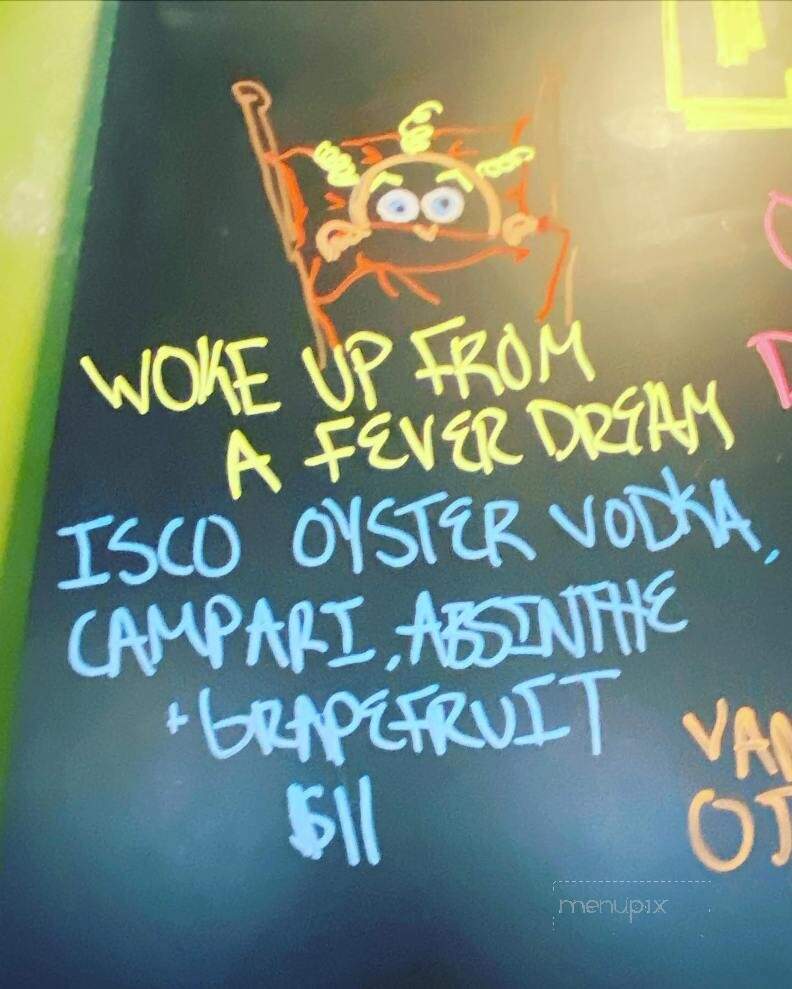 WOKE UP FROM
A FEVER DREAM
ISCO OYSTER VODKA,
CAMPARI, ABSINTHE
+ GRAPEFRUIT
$11
OJ
menupix